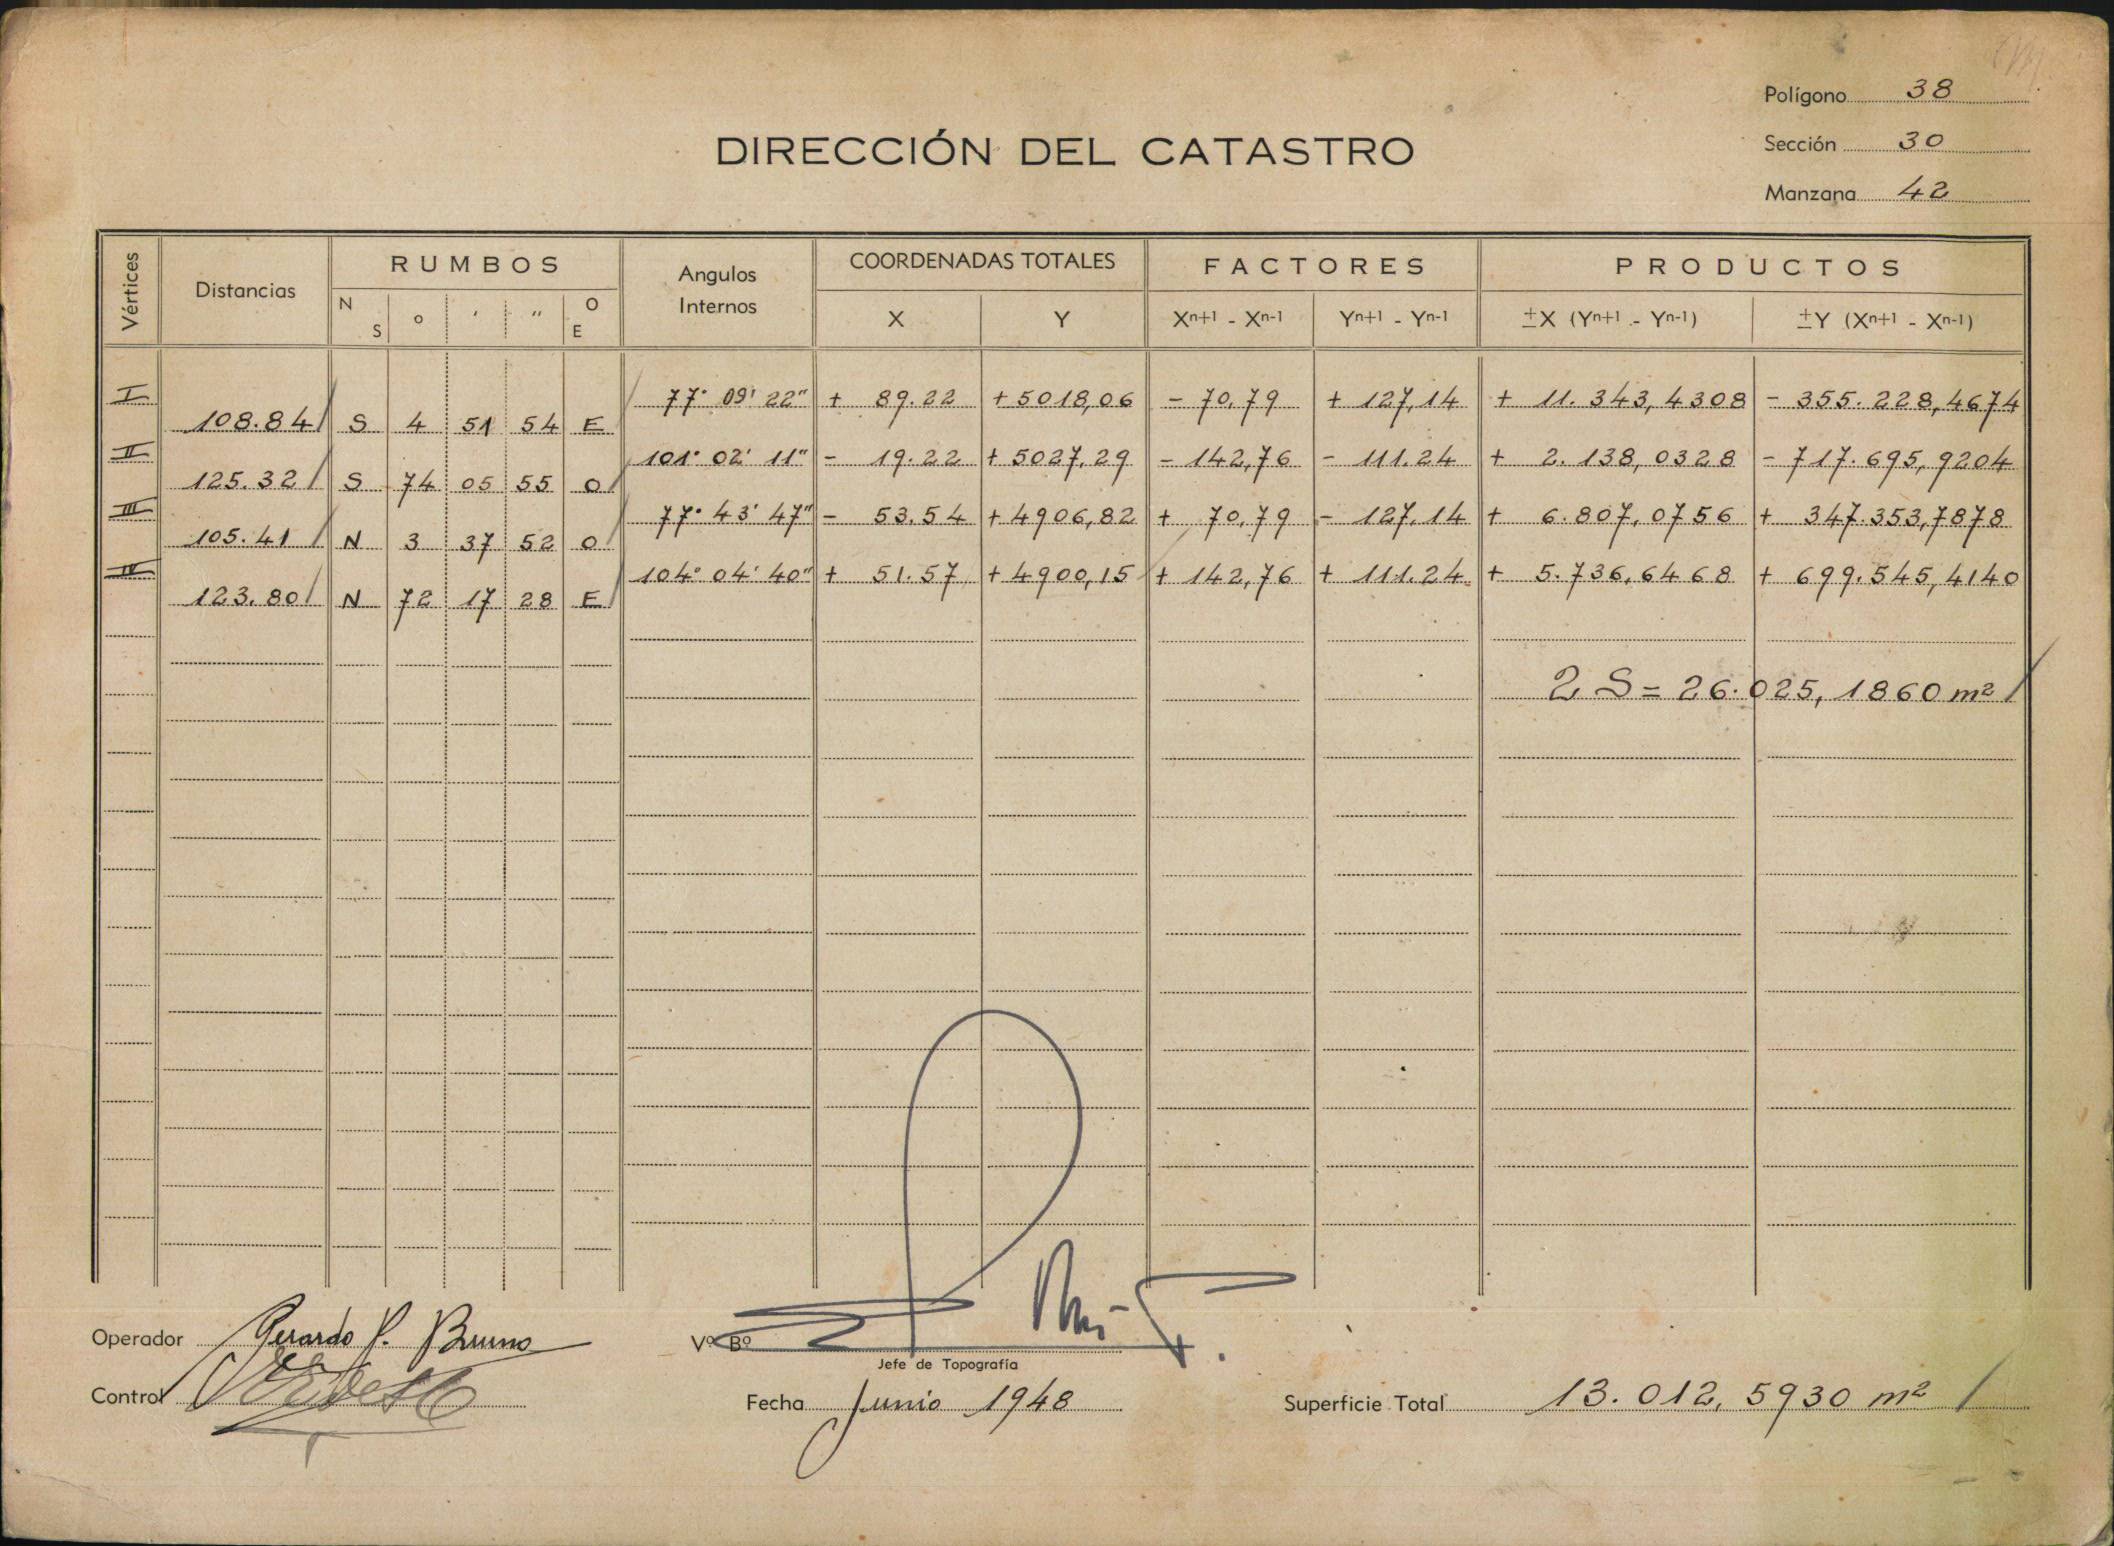 Polígono 38
DIRECCIÓN DEL CATASTRO
Sección 30
Manzana 42
Vértices
Distancias
RUMBOS
N S o ' " O E
Angulos Internos
COORDENADAS TOTALES
X Y
FACTORES
Xn+1 - Xn-1 Yn+1 - Yn-1
PRODUCTOS
±X (Yn+1 - Yn-1) ±Y (Xn+1 - Xn-1)
I 77° 09' 22" + 89.22 +5018,06 - 70,79 + 127,14 + 11.343,4308 - 355.228,4674
108.84 S 4 51 54 E
II 101° 02' 11" - 19.22 +5027,29 - 142,76 - 111.24 + 2.138,0328 - 717.695,9204
125.32 S 74 05 55 O
III 77° 43' 47" - 53.54 +4906,82 + 70,79 - 127,14 + 6.807,0756 + 347.353,7878
105.41 N 3 37 52 O
IV 104° 04' 40" + 51.57 +4900,15 + 142,76 + 111.24 + 5.736,6468 + 699.545,4140
123.80 N 72 17 28 E
2 S = 26.025,1860 m²
Operador Gerardo P. Bruno
Vº Bº
Jefe de Topografía
Control
Fecha Junio 1948
Superficie Total 13.012,5930 m²